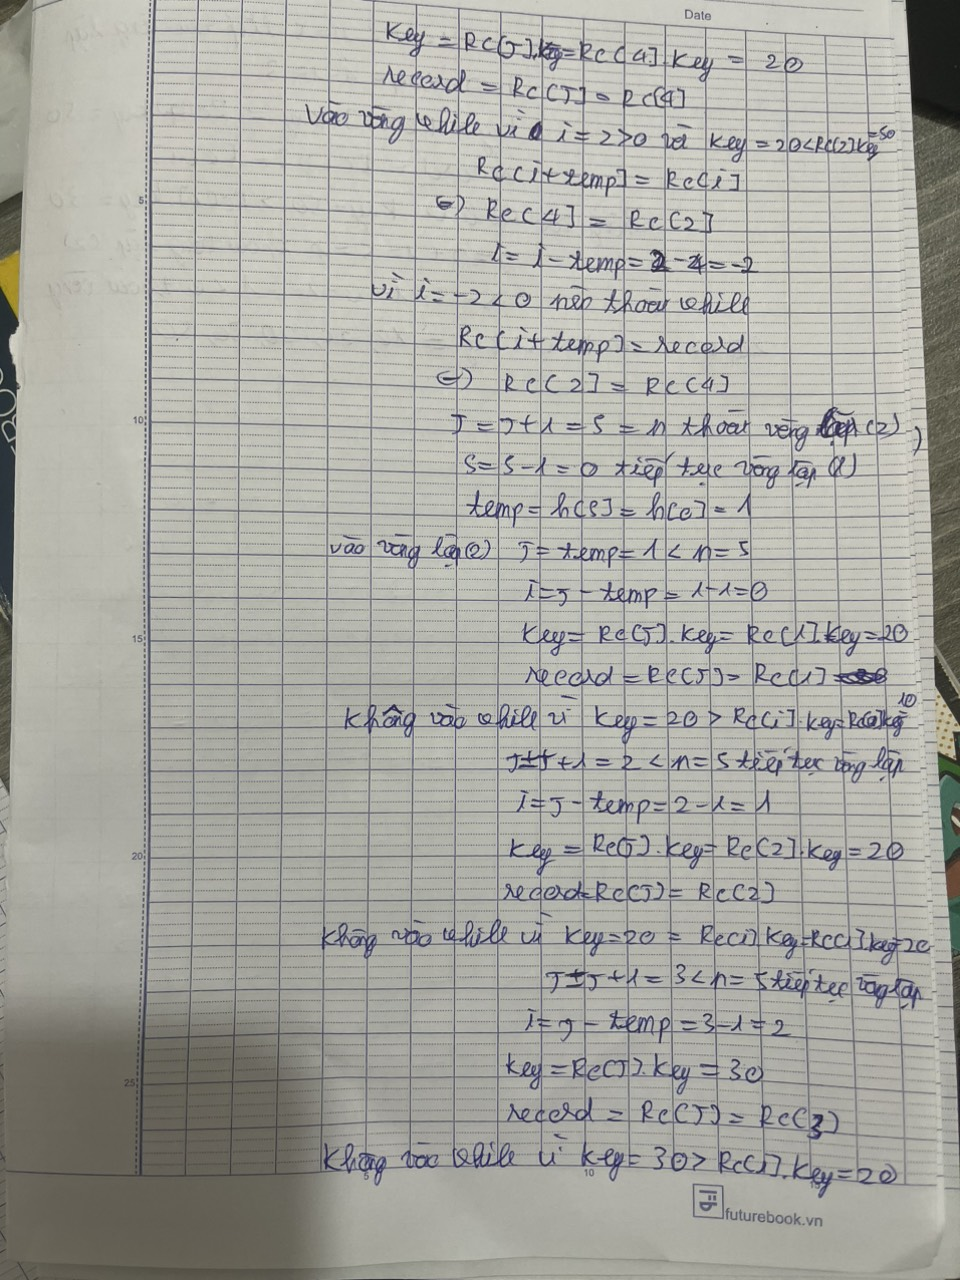 Date
Key = Rc[J].key = Rc[4].Key = 20
record = Rc[J] = Rc[4]
Vào vòng while vì i = 2 > 0 và Key = 20 < Rc[2].Key = 50
Rc[i + temp] = Rc[i]
<=> Rc[4] = Rc[2]
i = i - temp = 2 - 4 = -2
vì i = -2 < 0 nên thoát while
Rc[i + temp] = record
<=> Rc[2] = Rc[4]
J = J + 1 = 5 = n thoát vòng lặp (2)
S = S - 1 = 0 tiếp tục vòng lặp (1)
temp = h[S] = h[0] = 1
vào vòng lặp (2) J = temp = 1 < n = 5
i = J - temp = 1 - 1 = 0
Key = Rc[J].Key = Rc[1].Key = 20
record = Rc[J] = Rc[1]
Không vào while vì Key = 20 > Rc[i].Key = Rc[0].Key = 10
J = J + 1 = 2 < n = 5 tiếp tục vòng lặp
i = J - temp = 2 - 1 = 1
Key = Rc[J].Key = Rc[2].Key = 20
record = Rc[J] = Rc[2]
Không vào while vì Key = 20 = Rc[i].Key = Rc[1].Key = 20
J = J + 1 = 3 < n = 5 tiếp tục vòng lặp
i = J - temp = 3 - 1 = 2
Key = Rc[J].Key = 30
record = Rc[J] = Rc[3]
Không vào while vì Key = 30 > Rc[i].Key = 20
5
10
15
20
25
10
futurebook.vn